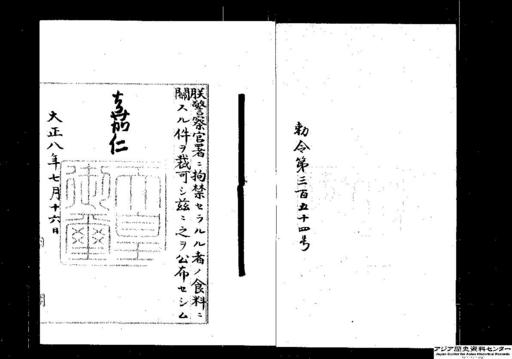 勅令第三百五十四号
朕警察官署ニ拘禁セラルル者ノ食料ニ
關スル件ヲ裁可シ茲ニ之ヲ公布セシム
嘉仁
天皇御璽
大正八年七月十六日
アジア歴史資料センター
Japan Center for Asian Historical Records